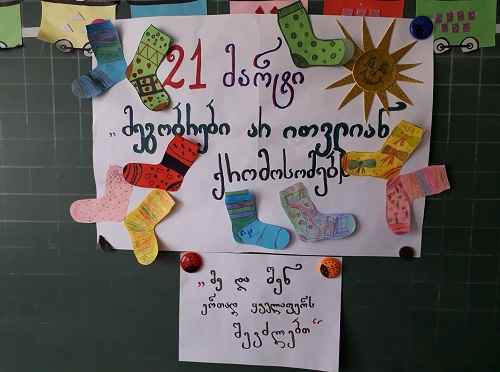 21 მარტი
„მეგობრები არ ითვლიან
ქრომოსომებს
„მე და შენ
ერთად ყველაფერს
შევძლებთ“